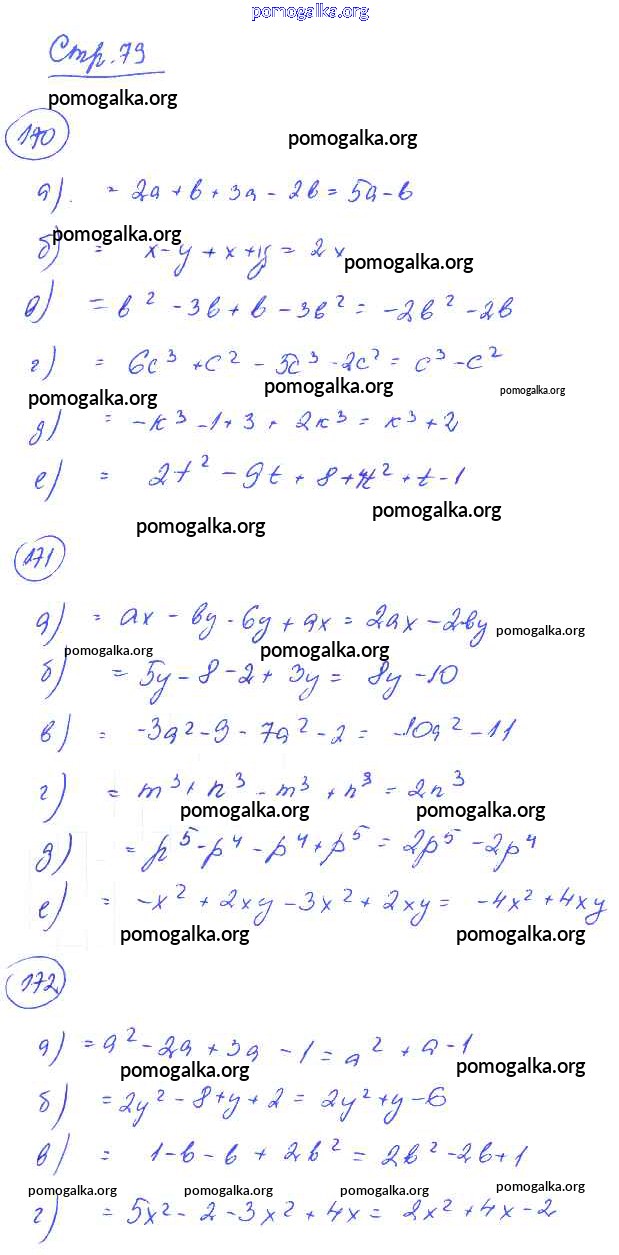 pomogalka.org
Стр. 79
pomogalka.org
170
pomogalka.org
а). = 2a + b + 3a - 2b = 5a - b
pomogalka.org
б) = x - y + x + y = 2x
pomogalka.org
в) = b² - 3b + b - 3b² = -2b² - 2b
г) = 6c³ + c² - 5c³ - 2c² = c³ - c²
pomogalka.org pomogalka.org pomogalka.org
д) = -k³ - 1 + 3 + 2k³ = k³ + 2
е) = 2t² - 9t + 8 + t² + t - 1
pomogalka.org pomogalka.org
171
а) = ax - by - by + ax = 2ax - 2by
pomogalka.org
pomogalka.org pomogalka.org
б) = 5y - 8 - 2 + 3y = 8y - 10
в) = -3a² - 9 - 7a² - 2 = -10a² - 11
г) = m³ + n³ - m³ + n³ = 2n³
pomogalka.org pomogalka.org
д) = p⁵ - p⁴ - p⁴ + p⁵ = 2p⁵ - 2p⁴
е) = -x² + 2xy - 3x² + 2xy = -4x² + 4xy
pomogalka.org pomogalka.org
172
а) = a² - 2a + 3a - 1 = a² + a - 1
pomogalka.org pomogalka.org
б) = 2y² - 8 + y + 2 = 2y² + y - 6
в) = 1 - b - b + 2b² = 2b² - 2b + 1
pomogalka.org pomogalka.org pomogalka.org pomogalka.org
г) = 5x² - 2 - 3x² + 4x = 2x² + 4x - 2